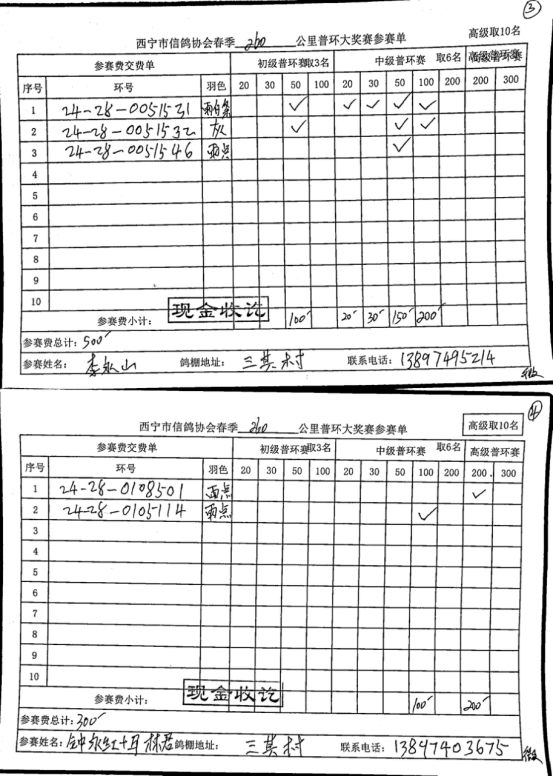 ③
高级取10名
西宁市信鸽协会春季 260 公里普环大奖赛参赛单
参赛费交费单 初级普环赛取3名 中级普环赛 取6名 高级普环赛
序号 环号 羽色 20 30 50 100 20 30 50 100 200 200 300
1 24-28-0051531 雨白条 ✓ ✓ ✓ ✓ ✓
2 24-28-0051532 灰 ✓ ✓ ✓
3 24-28-0051546 雨点 ✓
4
5
6
7
8
9
10
参赛费小计: 现金收讫 100 20 30 150 200
参赛费总计: 500
参赛姓名: 山 鸽棚地址: 三其村 联系电话: 13897495214
④
西宁市信鸽协会春季 260 公里普环大奖赛参赛单 高级取10名
参赛费交费单 初级普环赛取3名 中级普环赛 取6名 高级普环赛
序号 环号 羽色 20 30 50 100 20 30 50 100 200 200 300
1 24-28-0108501 雨点 ✓
2 24-28-0105114 雨点 ✓
3
4
5
6
7
8
9
10
参赛费小计: 现金收讫 100 200
参赛费总计: 300
参赛姓名: 鸽棚地址: 三其村 联系电话: 13897403675